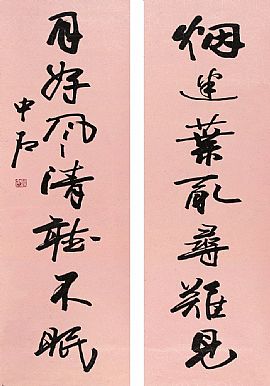 烟迷葉亂尋難見
月好風清聽不眠
中石